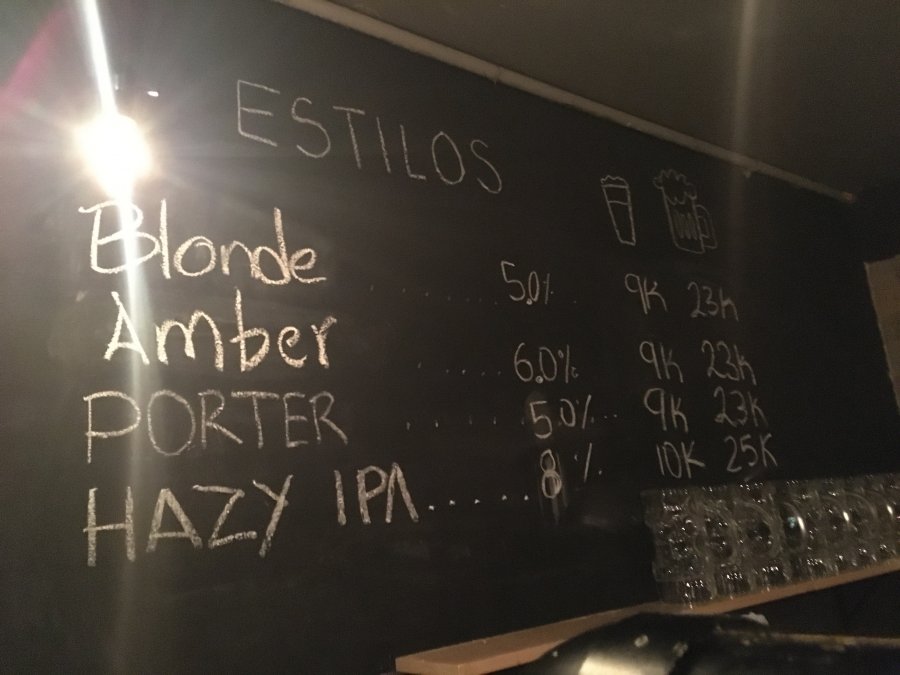 ESTILOS
Blonde ........ 5.0% .. 9K 23K
Amber .... 6.0% 9K 23K
PORTER .... 5.0% ... 9K 23K
HAZY IPA...... 8% 10K 25K